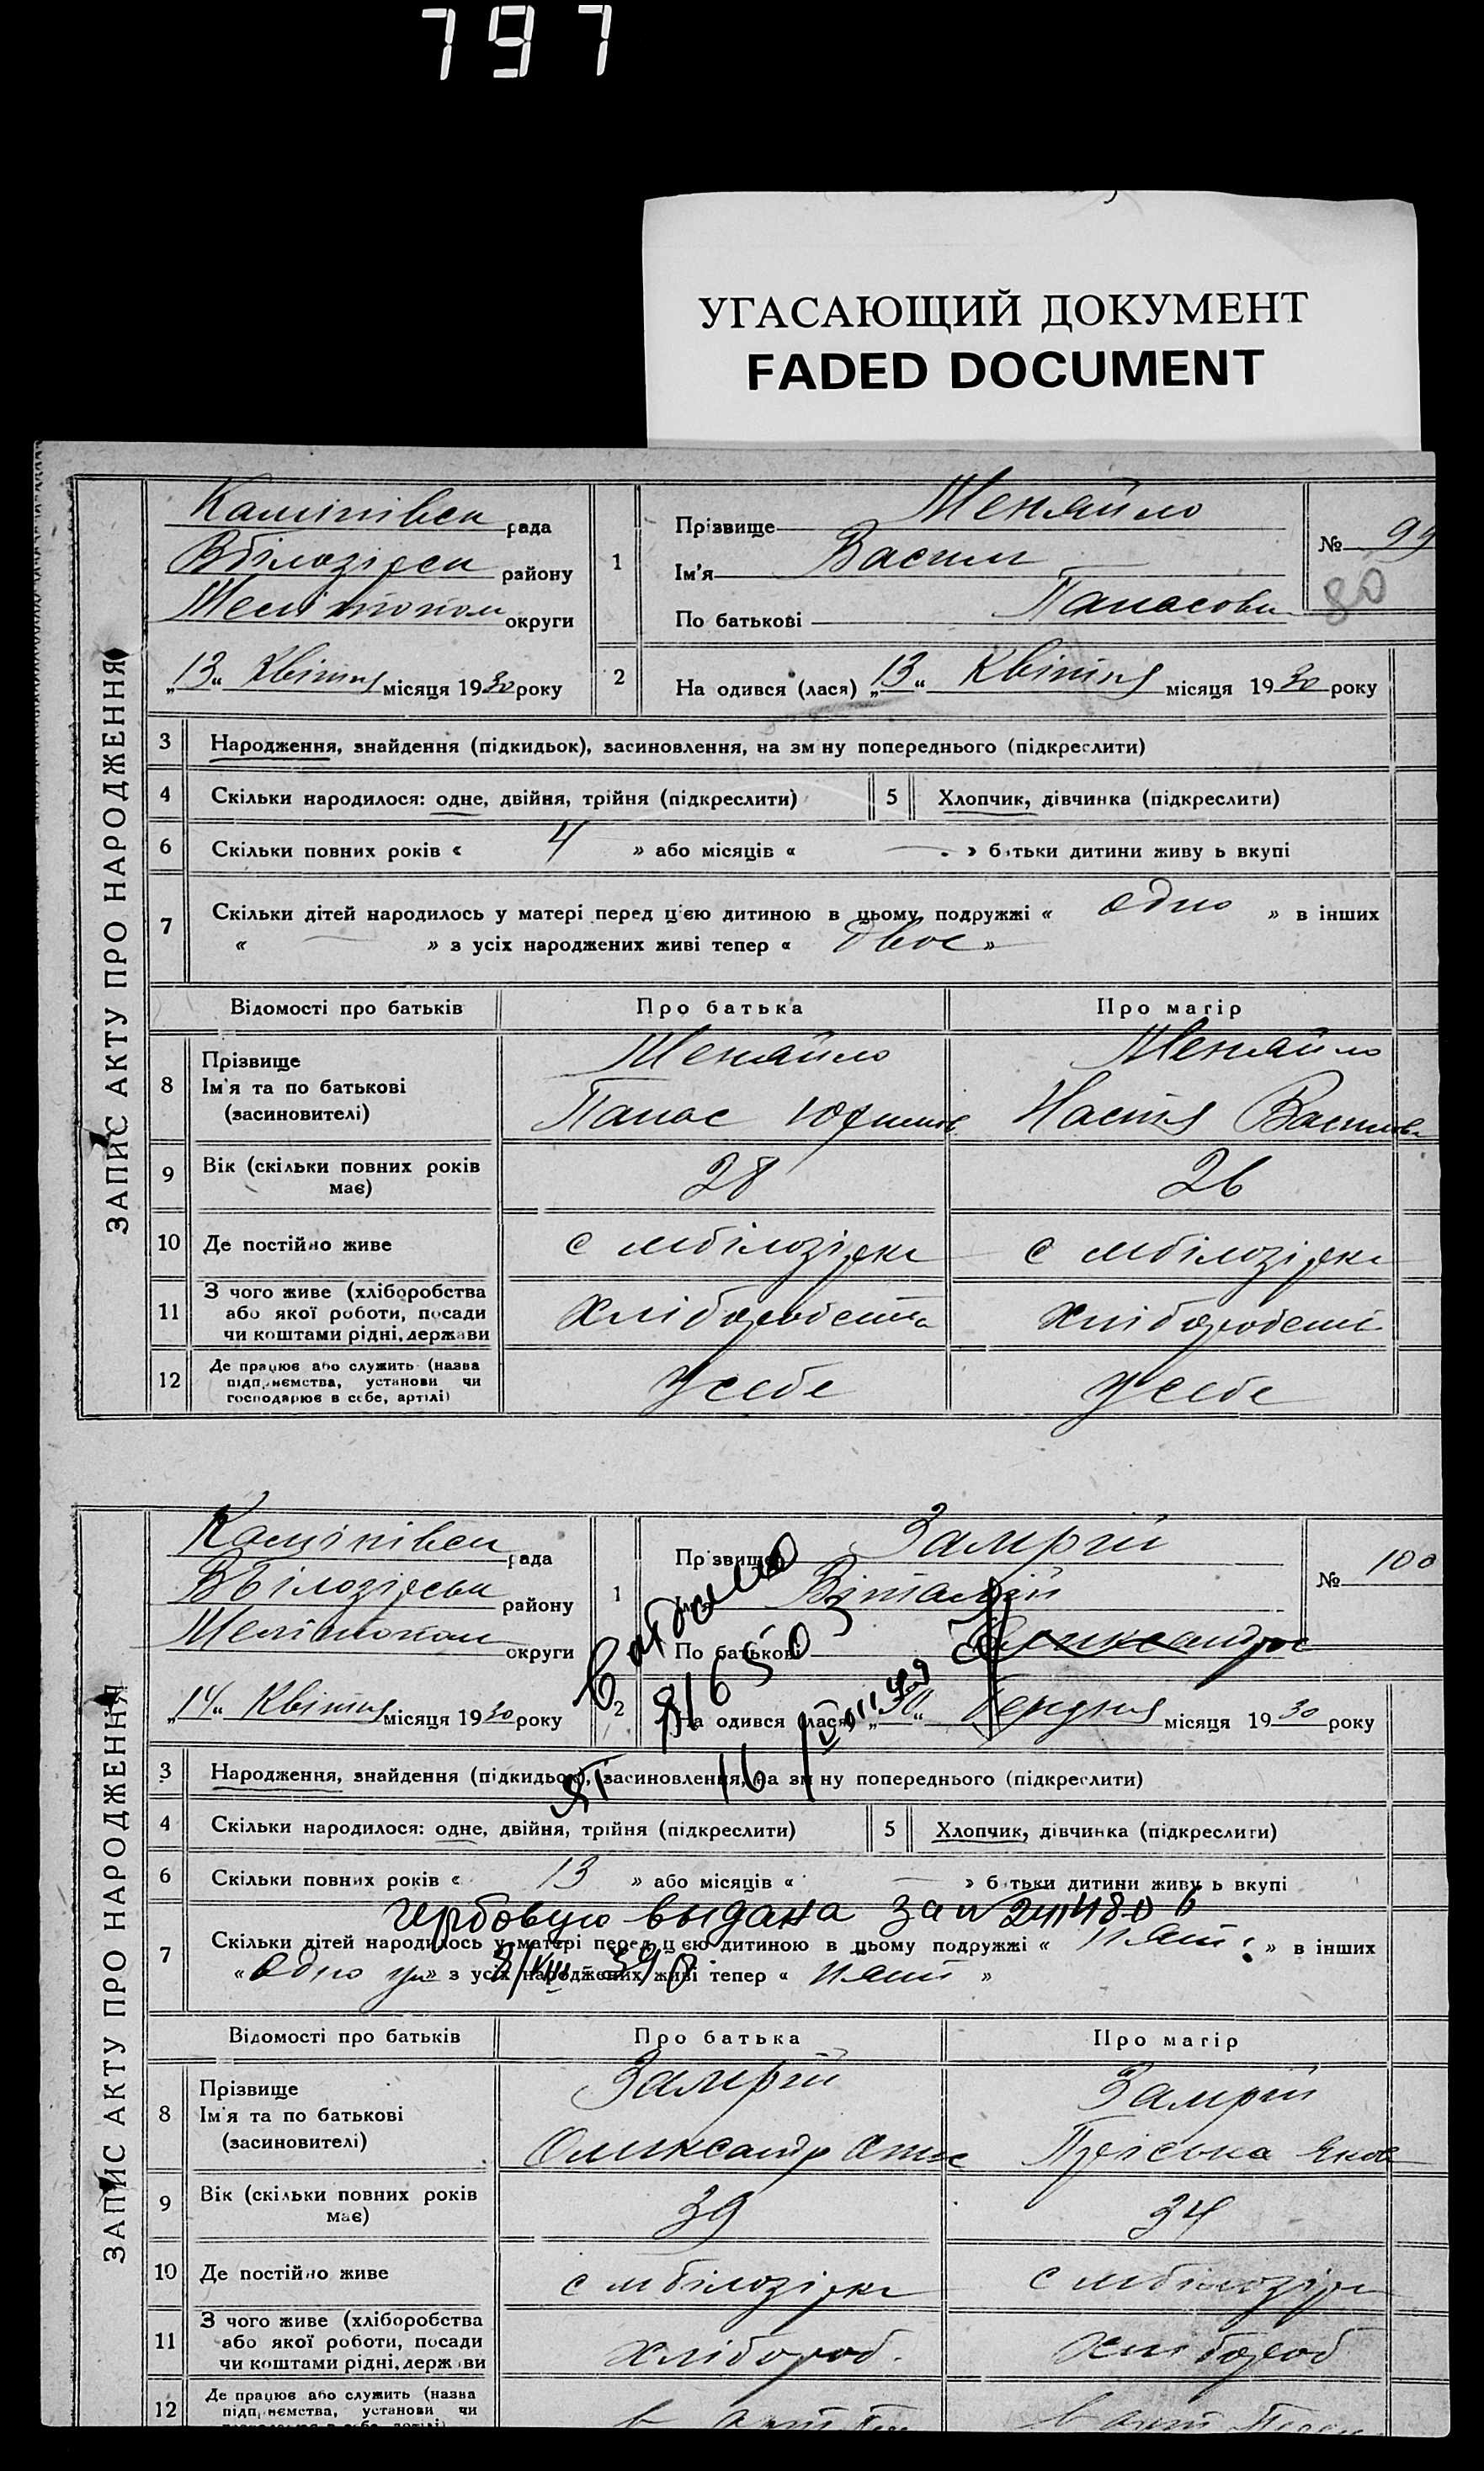 797
УГАСАЮЩИЙ ДОКУМЕНТ
FADED DOCUMENT
ЗАПИС АКТУ ПРО НАРОДЖЕННЯ
рада
району
Мелітопол округи
„13“ Квітня місяця 1930 року
1 Прізвище Меняйло
Ім'я Васил
По батькові Панасови
№ 99
80
2 На одився (лася) „13“ Квітня місяця 1930 року
3 Народження, знайдення (підкидьок), засиновлення, на зм ну попереднього (підкреслити)
4 Скільки народилося: одне, двійня, трійня (підкреслити) 5 Хлопчик, дівчинка (підкреслити)
6 Скільки повних років « 4 » або місяців « — » б тьки дитини живу ь вкупі
7 Скільки дітей народилось у матері перед цією дитиною в цьому подружжі « одно » в інших
« — » з усіх народжених живі тепер « двое »
Відомості про батьків Про батька Про матір
8 Прізвище Меняйло Меняйло
Ім'я та по батькові Панас Настя
(засиновителі)
9 Вік (скільки повних років має) 28 26
10 Де постійно живе с мбілозірка с мбілозірка
11 З чого живе (хліборобства
або якої роботи, посади
чи коштами рідні, держави хліборобства хліборобст
12 Де працює або служить (назва
підп иємства, установи чи
господарює в себе, артілі) У себе У себе
ЗАПИС АКТУ ПРО НАРОДЖЕННЯ
рада
району
Мелітопол округи
„14“ Квітня місяця 1930 року
1 Пр звище Замрій
Ім'я Віталій
По батькові Олександров
№ 100
2 На одився (лася) „30“ місяця 1930 року
3 Народження, знайдення (підкидьок), засиновлення, на зм ну попереднього (підкреслити)
4 Скільки народилося: одне, двійня, трійня (підкреслити) 5 Хлопчик, дівчинка (підкреслити)
6 Скільки повних років « 13 » або місяців « — » б тьки дитини живу ь вкупі
гербовую выдана
7 Скільки дітей народилось у матері перед цією дитиною в цьому подружжі « » в інших
« одно » з усіх народжених живі тепер « пять »
Відомості про батьків Про батька Про матір
8 Прізвище Замрій Замрій
Ім'я та по батькові Олександр Пріська Яков
(засиновителі)
9 Вік (скільки повних років має) 39 34
10 Де постійно живе с мбілозірка с мбілозірк
11 З чого живе (хліборобства
або якої роботи, посади
чи коштами рідні, держ ви хлібороб. хлібороб
12 Де працює або служить (назва
підп иємства, установи чи